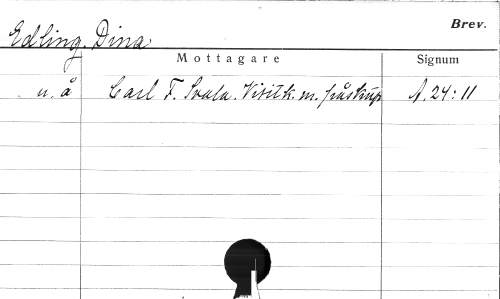 Brev.
Edling, Dina
Mottagare Signum
u. å Carl F. Svala. Visitk. m. påskrift A. 24:11